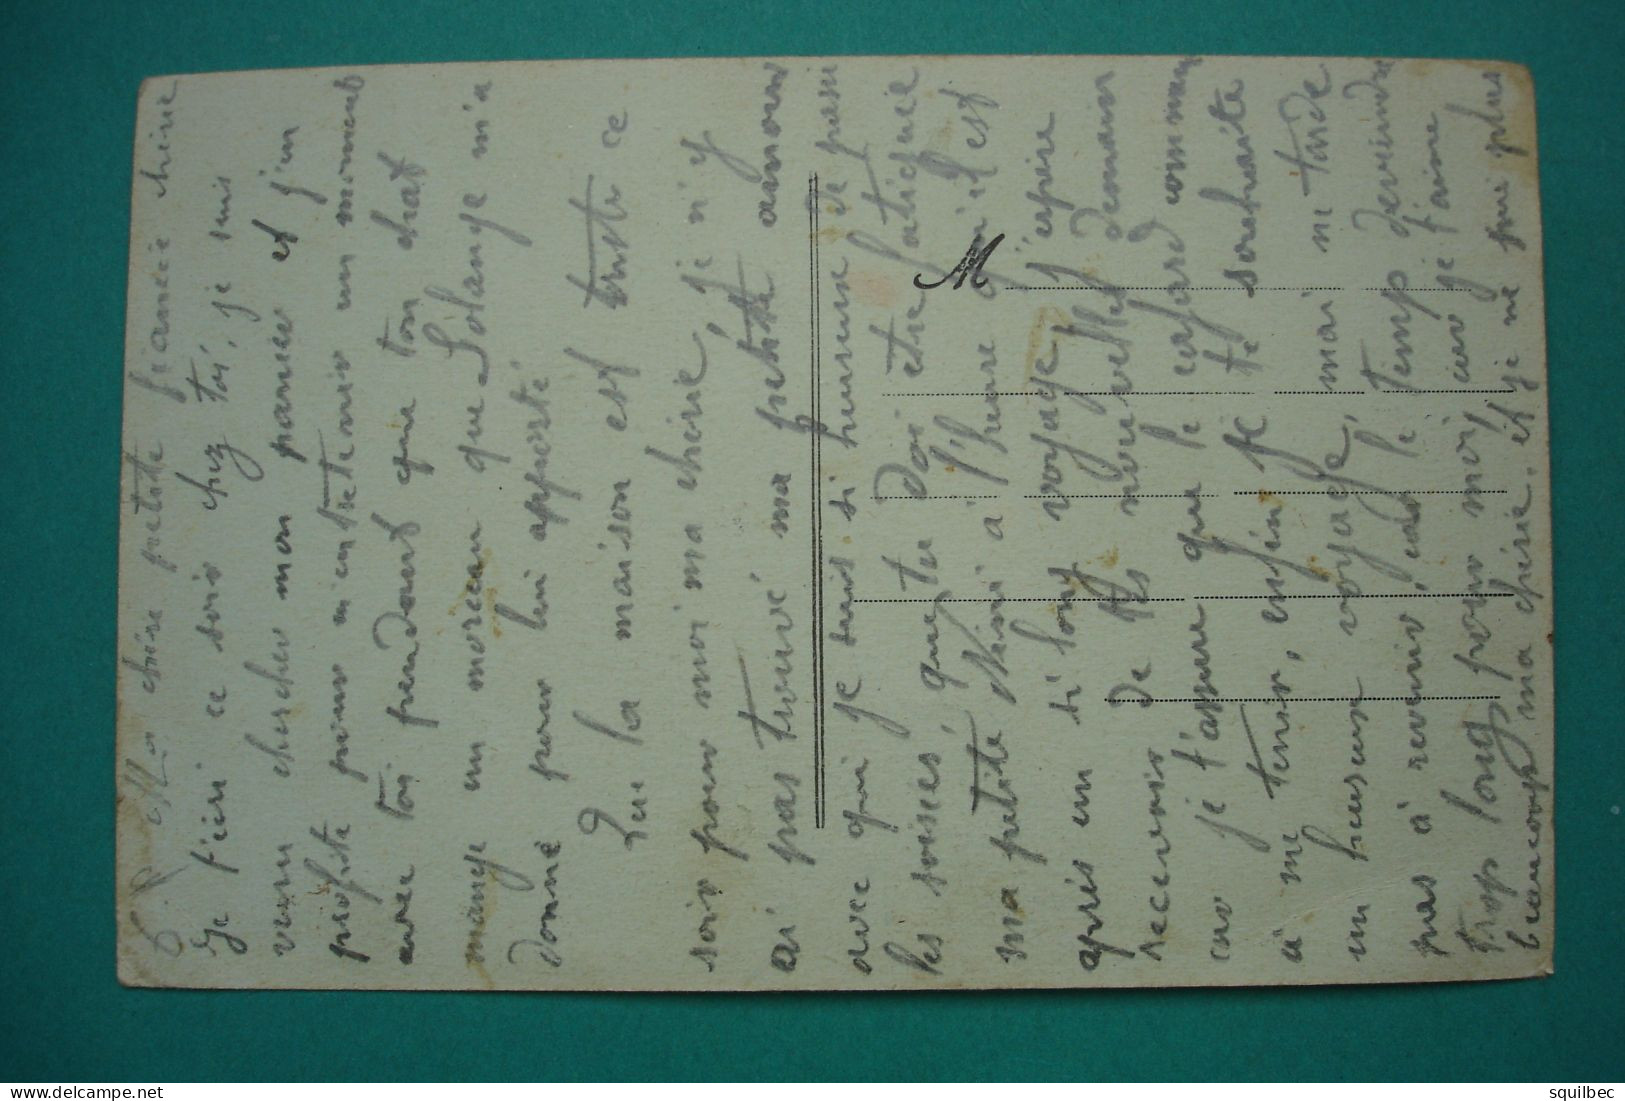 chère petite fiancée chérie
Je t'écri ce soir chez toi, je suis
venu chercher mon panier et j'en
profite pour m'entretenir un moment
avec toi pendant que ton chat
mange un morceau que Solange m'a
donné pour lui apporté
Que la maison est triste ce
soir pour moi ma cherie, je n'y
ai pas trouvé ma petite amour
avec qui je suis si hureuse de passer
les soirées, que tu doi etre fatiguée
ma petite Nini a l'heure qu'il est
après un si long voyage, j'espère
recevoir de tes nouvelles demain
car je t'assure que le cafard commence
à me tenir, enfin je te souhaite
un heureux voyage, mai n tarde
pas à revenir, car le temp deviendra
trop long pour moi, car je t'aime
beaucoup ma chérie. et je ne puis plus
M
delcampe.net
squilbec